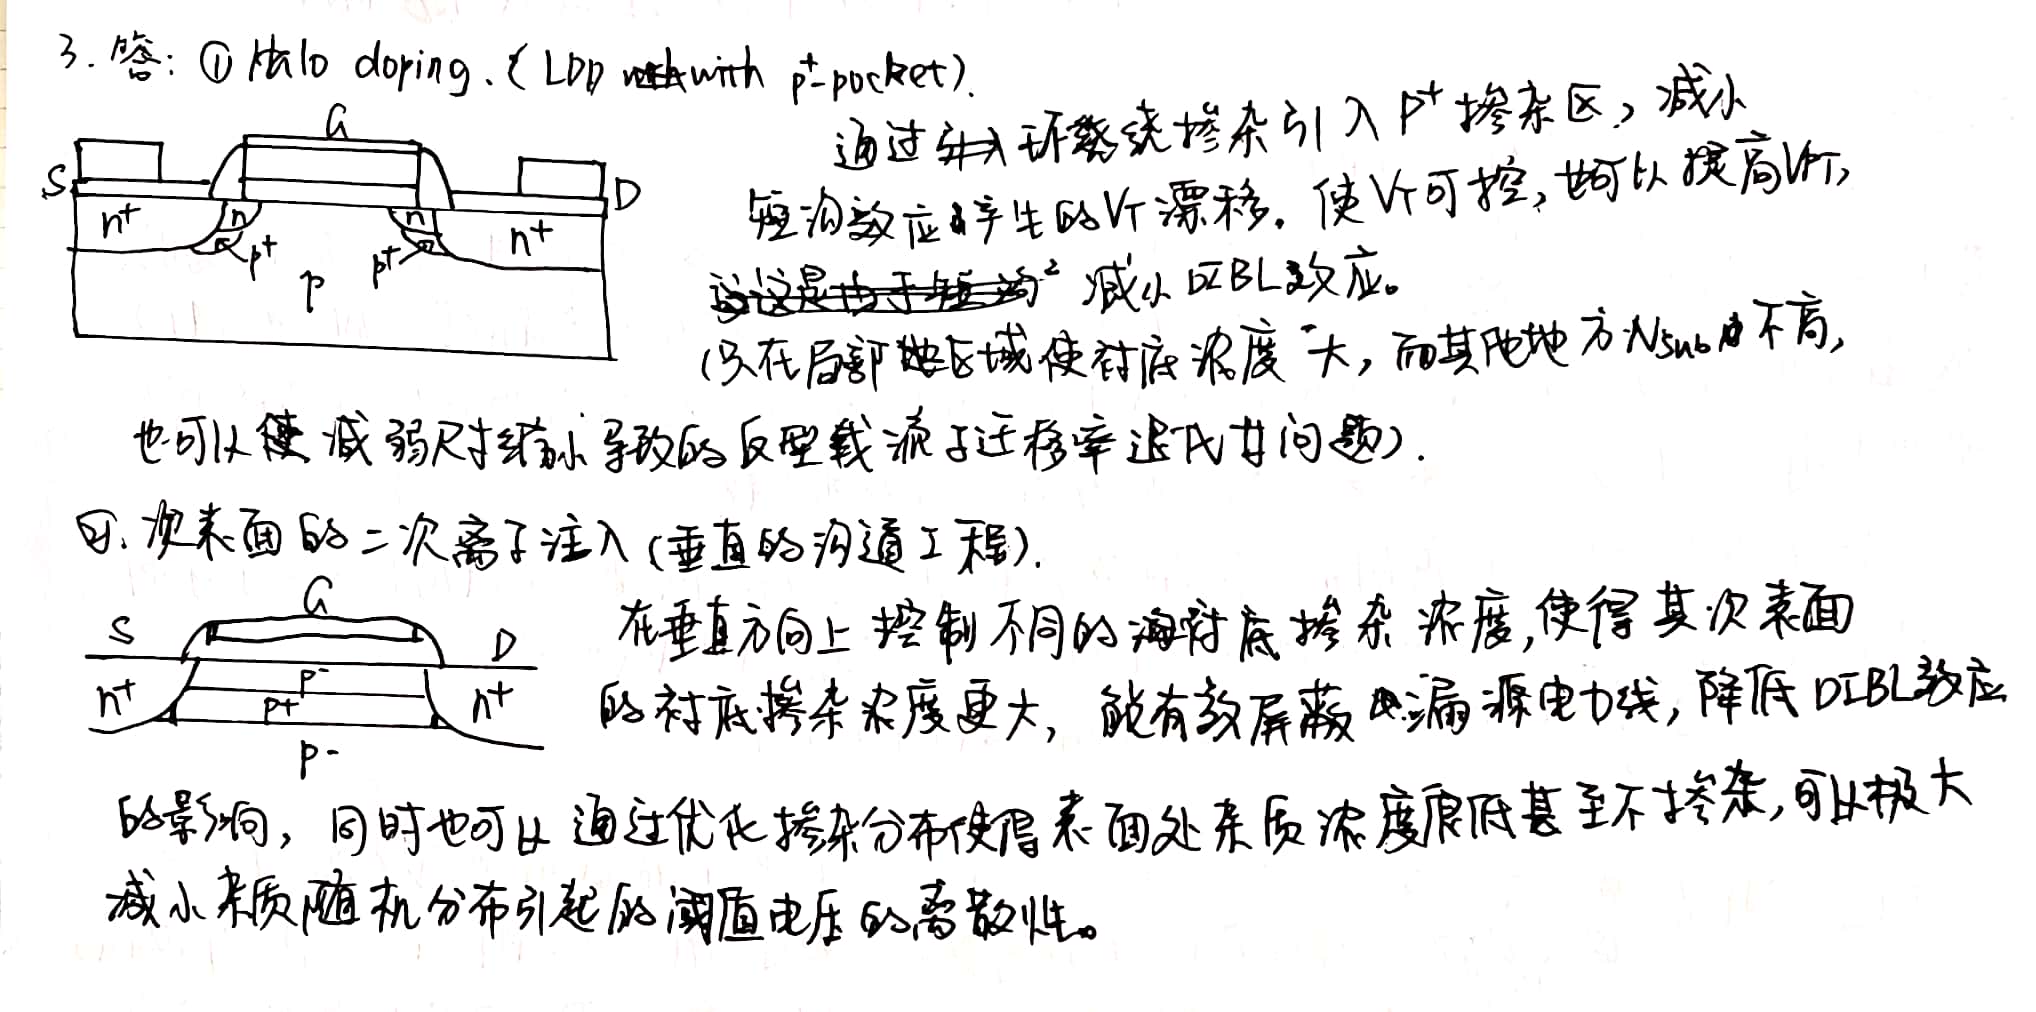 3. 答: ① Halo doping. (LDD with p⁺-pocket).
G
S
D
n⁺
n
n
n⁺
p⁺
p⁺
p
通过环绕掺杂引入P⁺掺杂区, 减小
短沟效应产生的VT漂移. 使VT可控, 也可以提高VPT,
减小DIBL效应。
(只在局部区域使衬底浓度大, 而其他地方Nsub不高,
也可以减弱尺寸缩小导致的反型载流子迁移率退化等问题).
②. 次表面的二次离子注入 (垂直的沟道工程).
G
S
D
n⁺
p⁻
p⁺
n⁺
p-
在垂直方向上控制不同的衬底掺杂浓度, 使得其次表面
的衬底掺杂浓度更大, 能有效屏蔽漏源电力线, 降低DIBL效应
的影响, 同时也可以通过优化掺杂分布使得表面处杂质浓度很低甚至不掺杂, 可以极大
减小杂质随机分布引起的阈值电压的离散性。